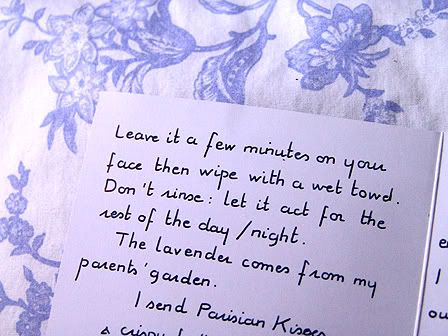 Leave it a few minutes on your
face then wipe with a wet towel.
Don't rinse: let it act for the
rest of the day/night.
The lavender comes from my
parents' garden.
I send Parisian Kisses
a crispy